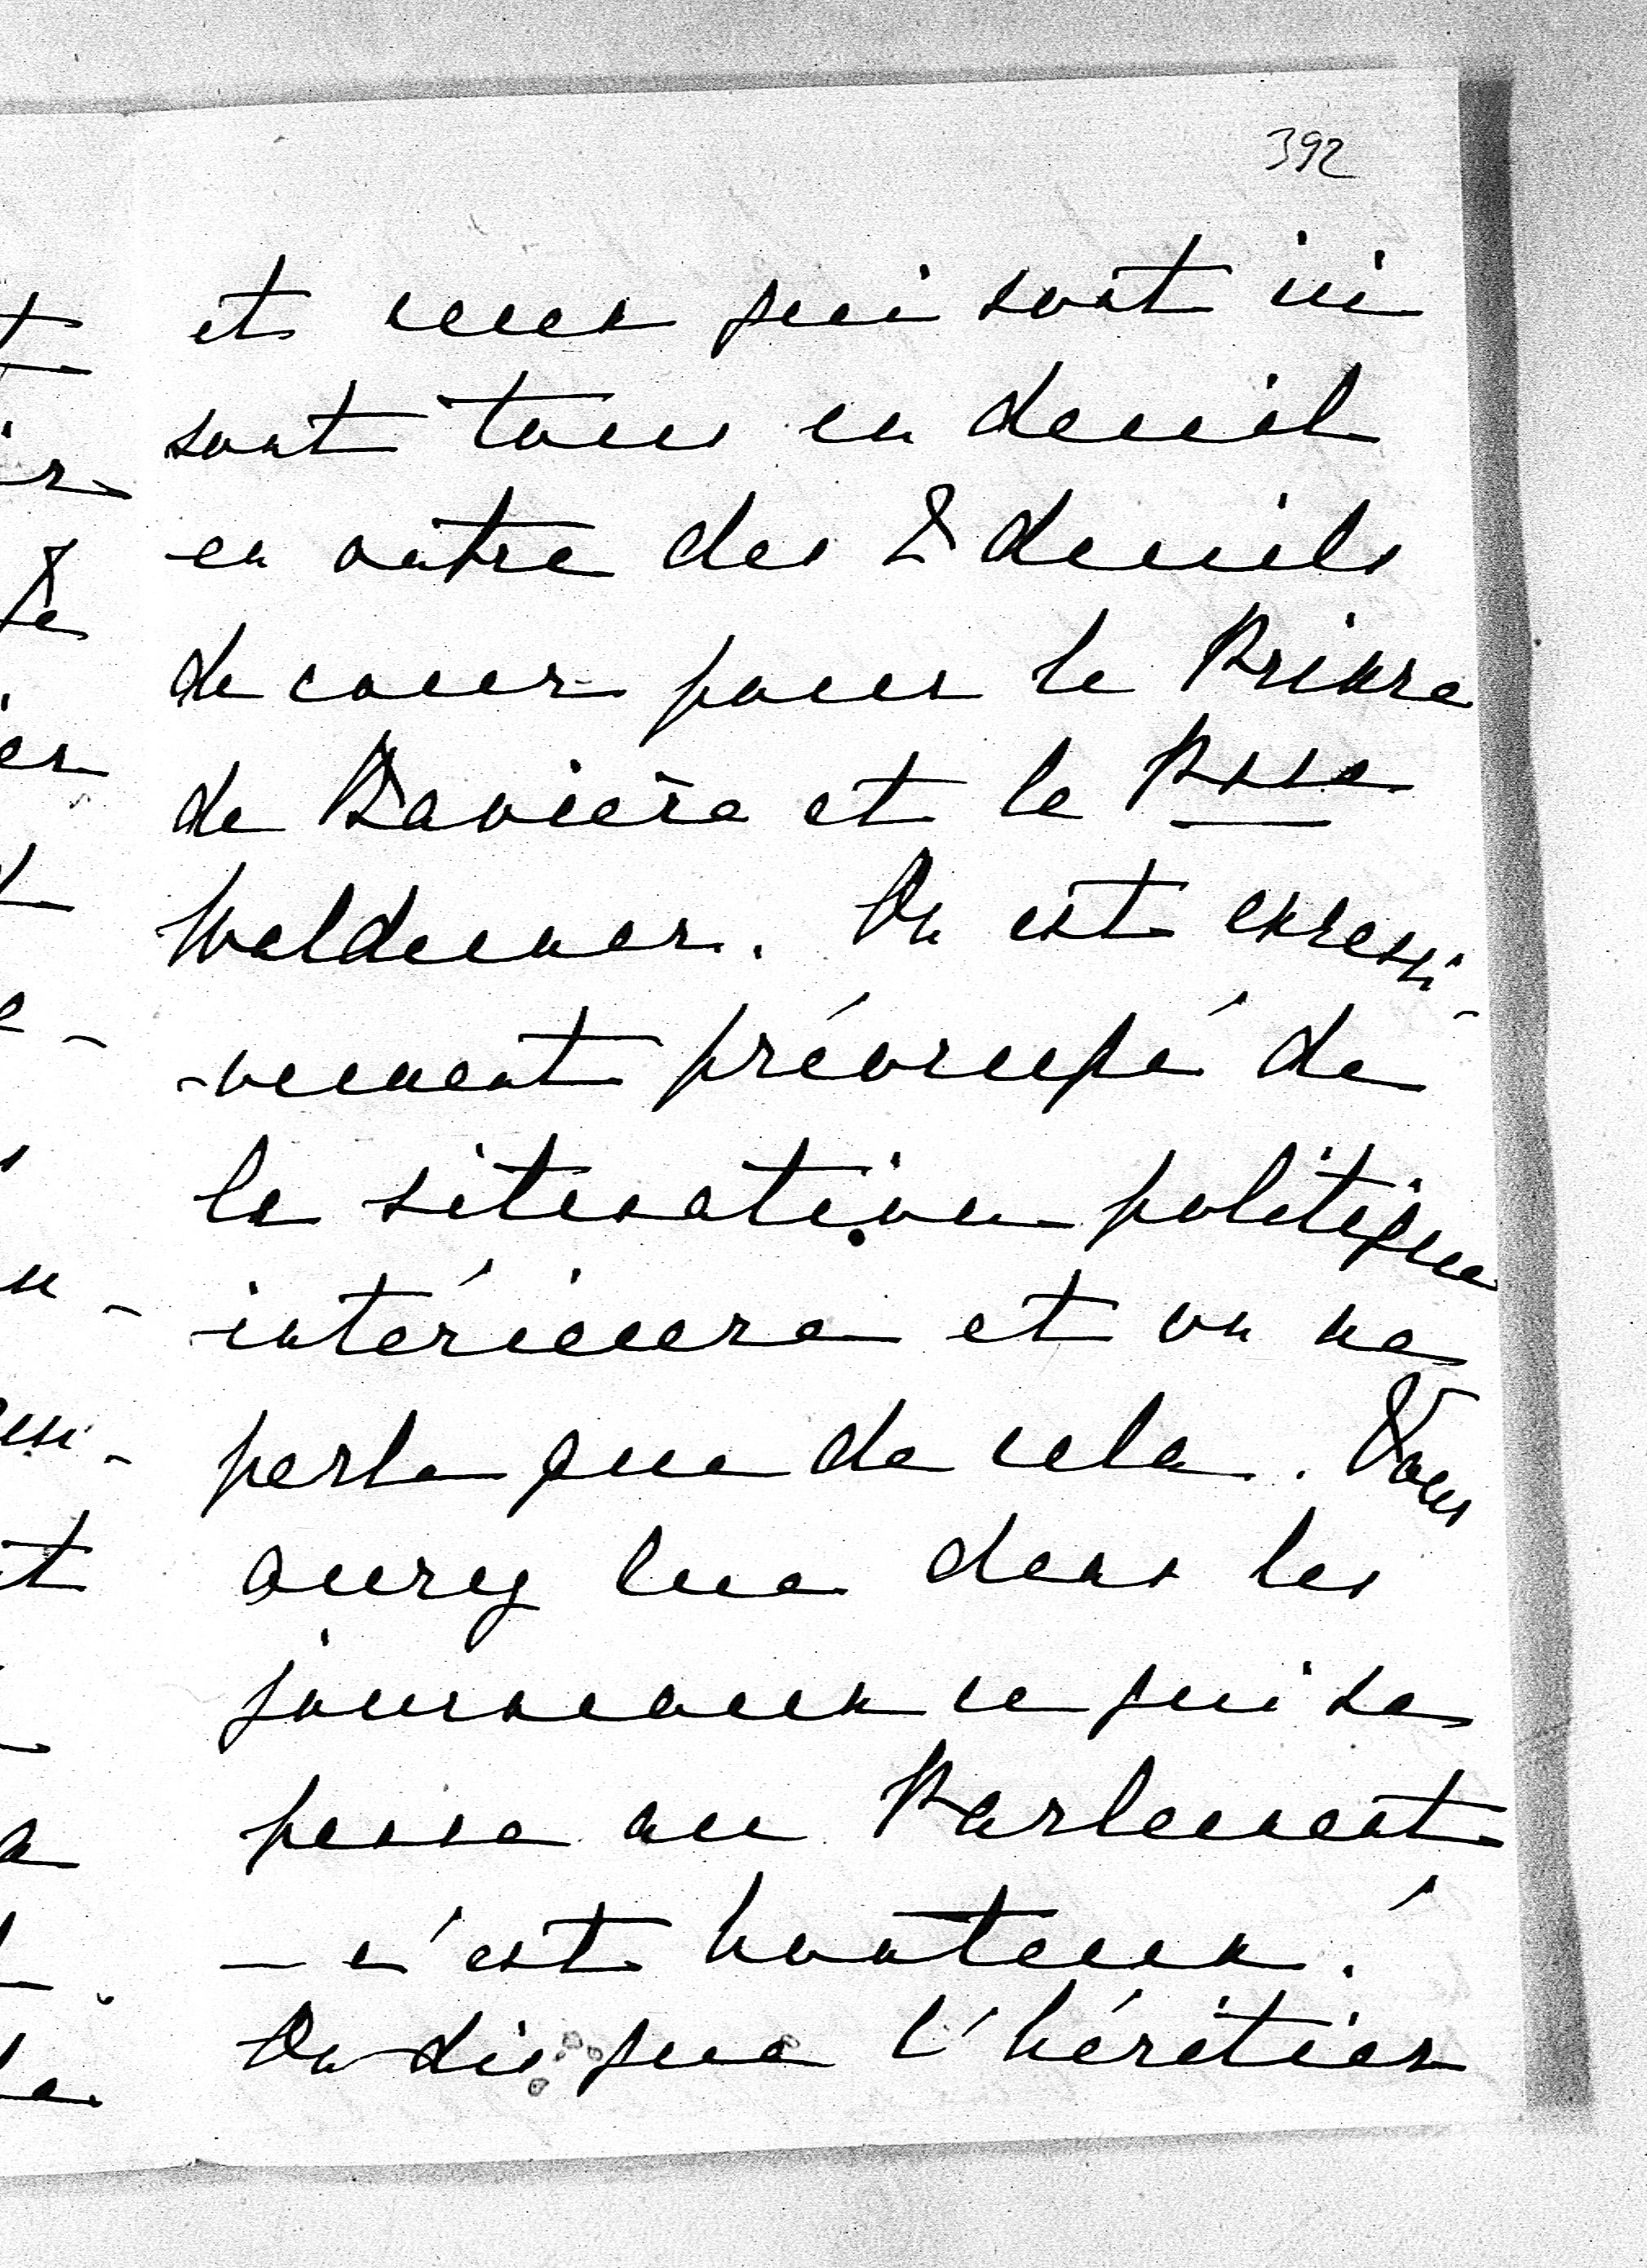 392
et ceux qui sont ici
sont tous en deuil
en outre des 2 deuils
de cour pour le Prince
de Bavière et le Psse
Waldemar. On est excessi-
-vement préoccupé de
la situation politique
intérieure et on ne
parle que de cela. Vous
aurez lue dans les
journaux ce qui se
passe au Parlement
— c'est honteux!
On dis que l'héritier